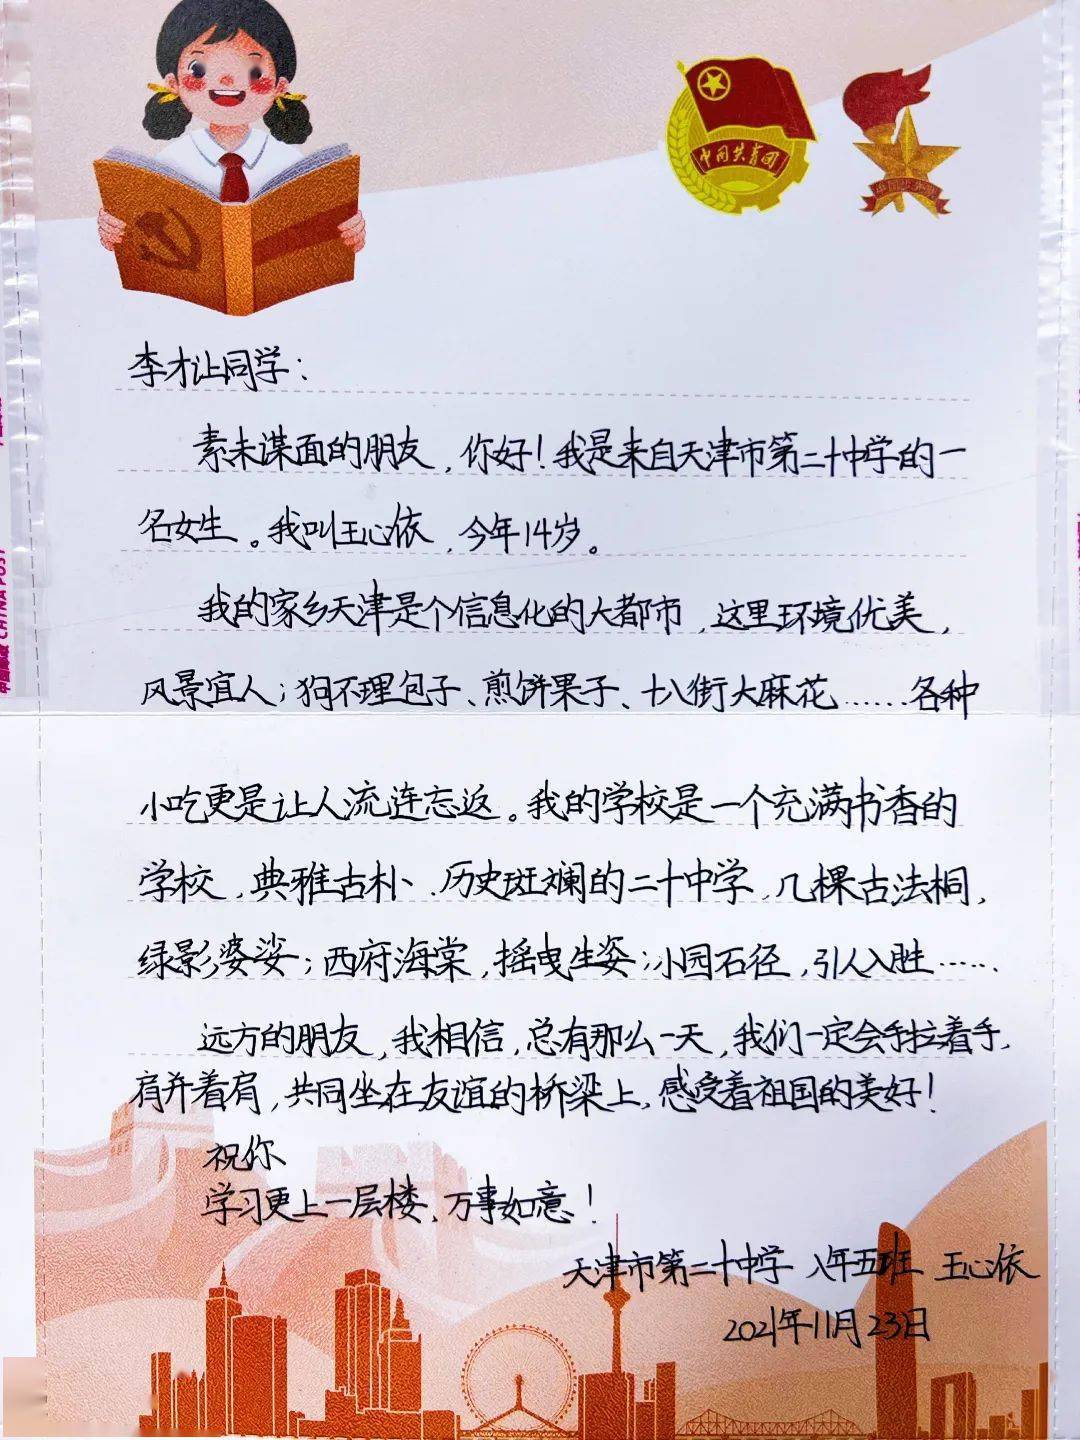 中国共青团
李才让同学：
素未谋面的朋友，你好！我是来自天津市第二十中学的一
名女生。我叫王心依，今年14岁。
我的家乡天津是个信息化的大都市，这里环境优美，
风景宜人；狗不理包子、煎饼果子、十八街大麻花……各种
小吃更是让人流连忘返。我的学校是一个充满书香的
学校，典雅古朴、历史斑斓的二十中学，几棵古法桐，
绿影婆娑；西府海棠，摇曳生姿；小园石径，引人入胜……
远方的朋友，我相信，总有那么一天，我们一定会手拉着手，
肩并着肩，共同坐在友谊的桥梁上，感受着祖国的美好！
祝你
学习更上一层楼，万事如意！
天津市第二十中学 八年五班 王心依
2021年11月23日
CHINA POST